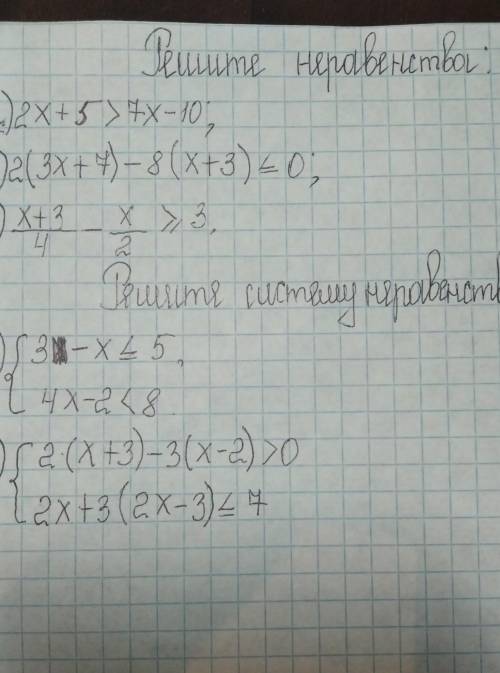 Решите неравенства:
) 2x+5>7x-10;
) 2(3x+7)-8(x+3)≤0;
) \frac{x+3}{4} - \frac{x}{2} ≥ 3.
Решите систему неравенств
) { 3 - x ≤ 5,
4x-2<8
) { 2·(x+3)-3(x-2)>0
2x+3(2x-3)≤7